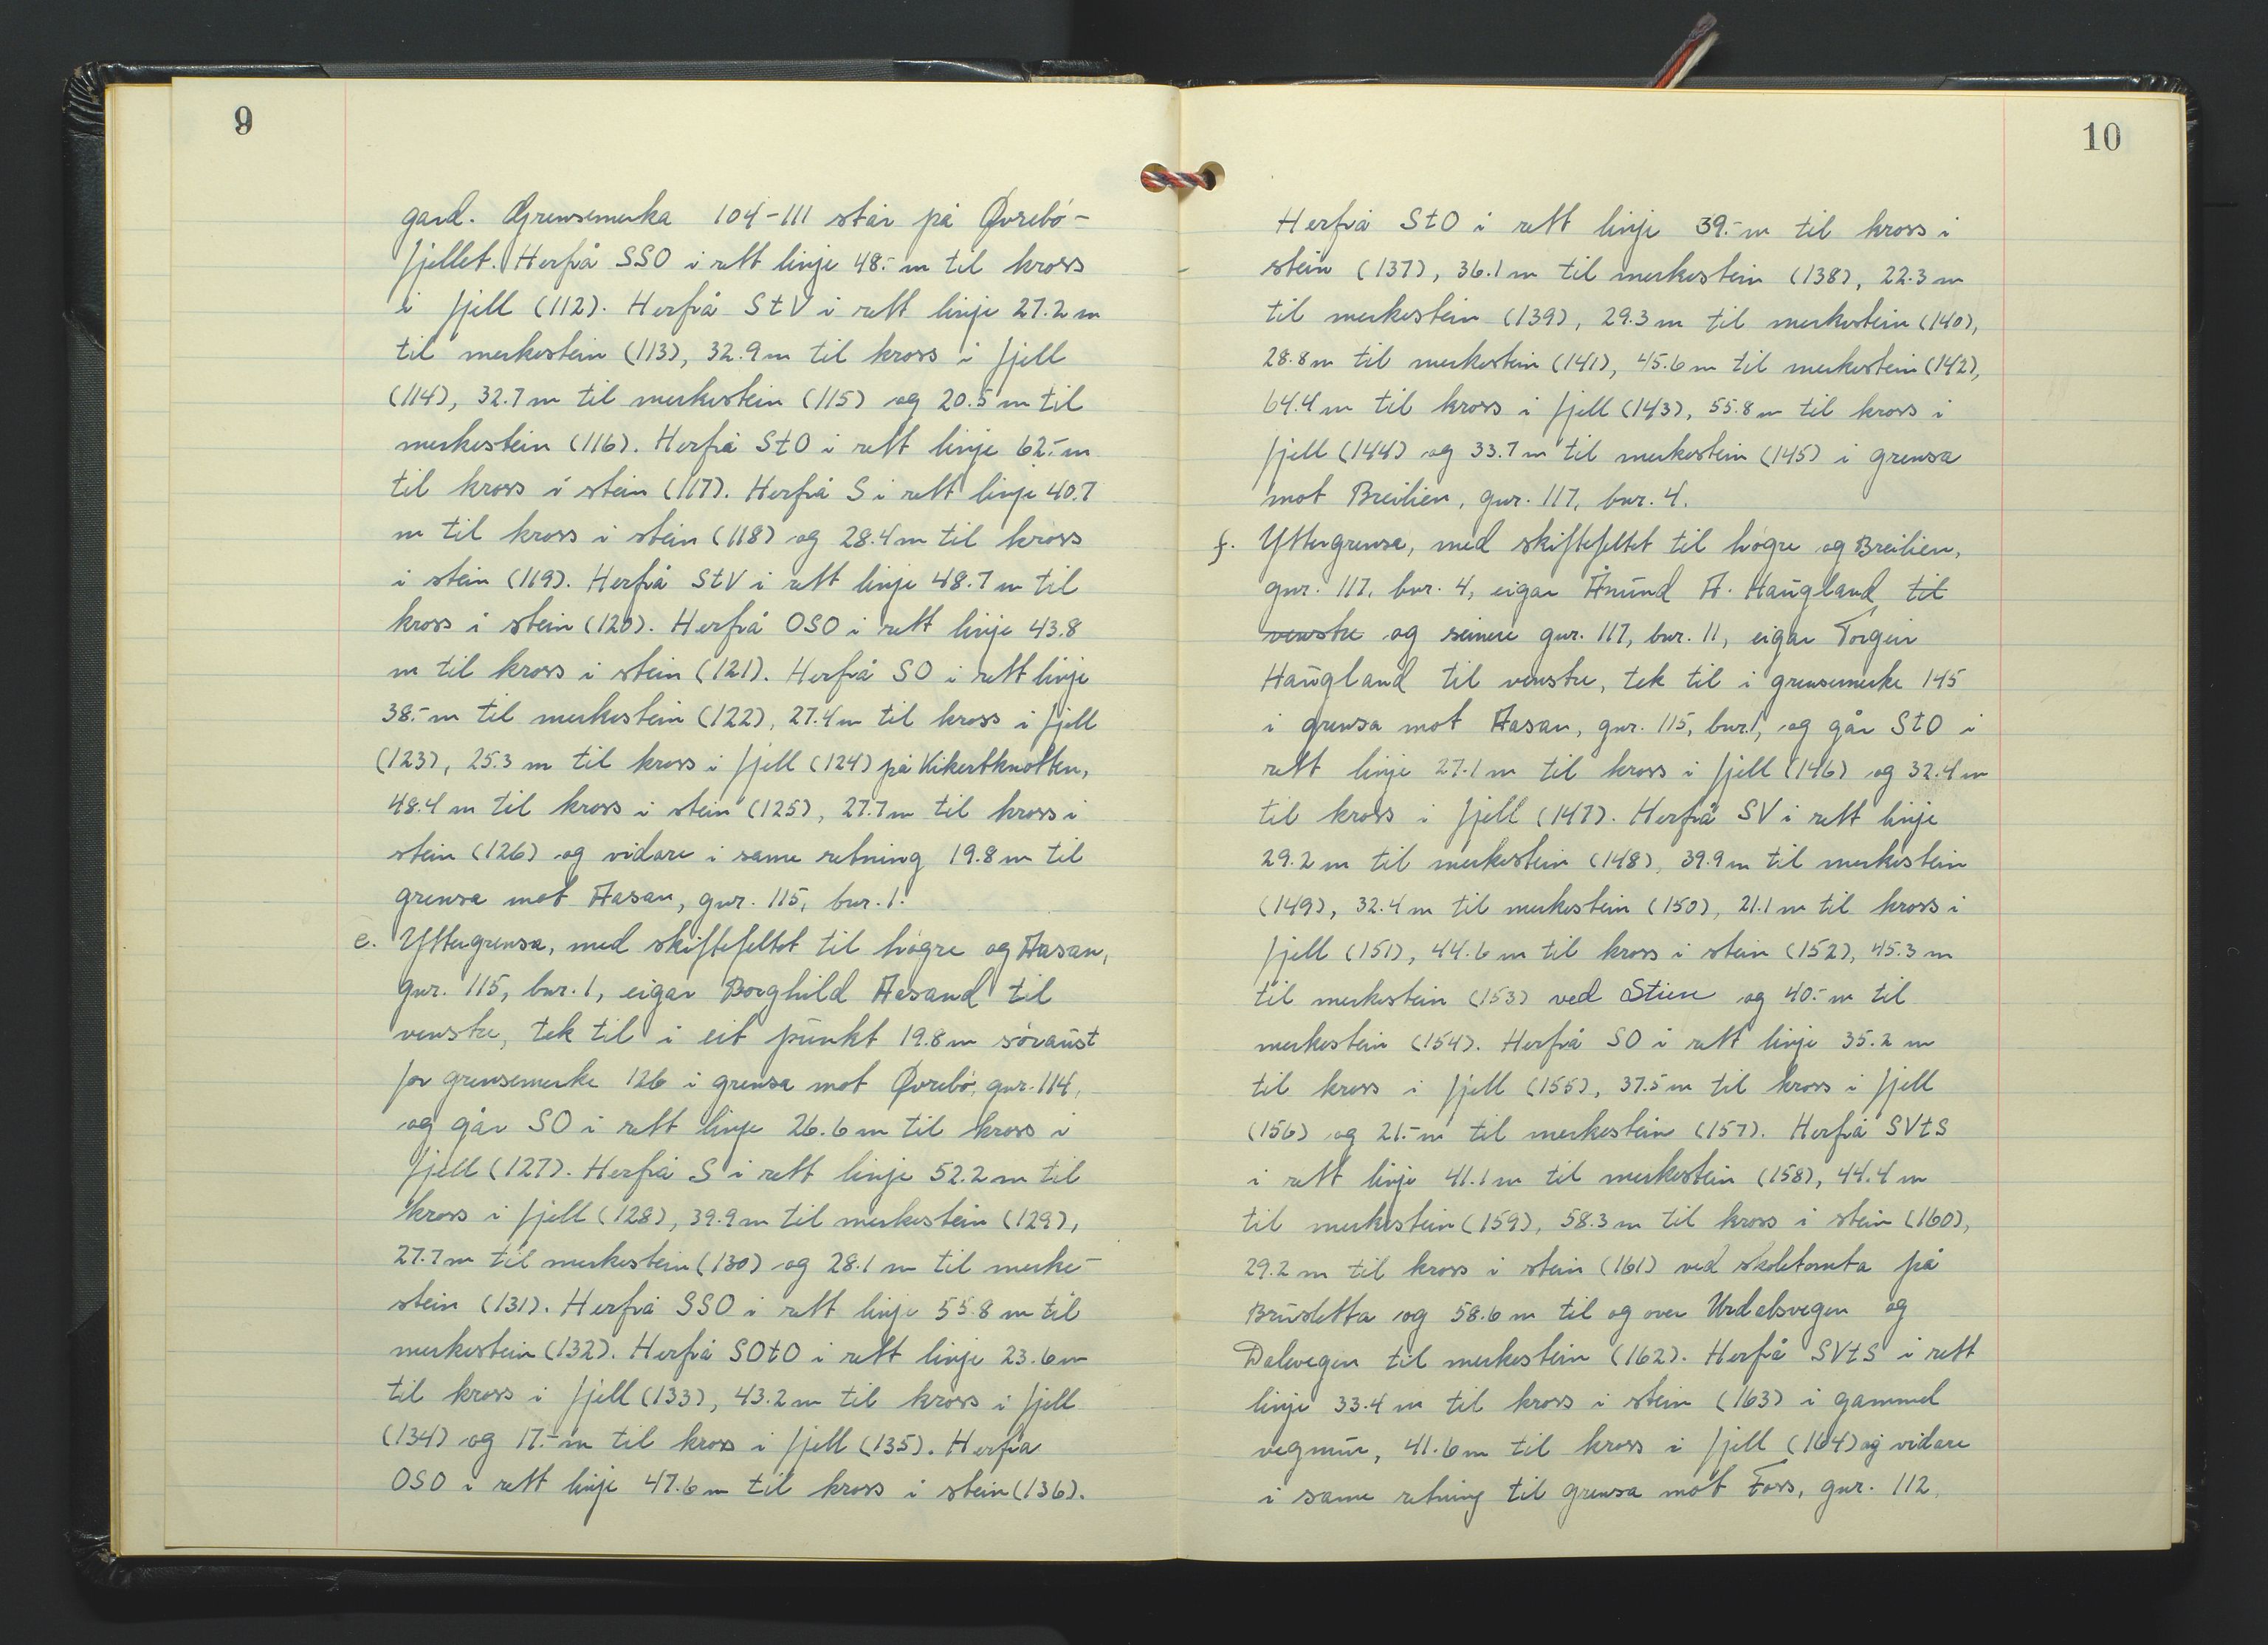 9
gard. Grensemerka 104-111 står på Øvrebø-
fjellet. Herfrå SSO i rett linje 48.- m til kross
i fjell (112). Herfrå StV i rett linje 27.2 m
til merkestein (113), 32.9 m til kross i fjell
(114), 32.7 m til merkestein (115) og 20.5 m til
merkestein (116). Herfrå StO i rett linje 62.- m
til kross i stein (117). Herfrå S i rett linje 40.7
m til kross i stein (118) og 28.4 m til kross
i stein (119). Herfrå StV i rett linje 48.7 m til
kross i stein (120). Herfrå OSO i rett linje 43.8
m til kross i stein (121). Herfrå SO i rett linje
38.- m til merkestein (122), 27.4 m til kross i fjell
(123), 25.3 m til kross i fjell (124) på Kikertknotten,
48.4 m til kross i stein (125), 27.7 m til kross i
stein (126) og vidare i same retning 19.8 m til
grensa mot Aasan, gnr. 115, bnr. 1.
e. Yttergrensa, med skiftefeltet til høgre og Aasan,
gnr. 115, bnr. 1, eigar Borghild Aasand til
venstre, tek til i eit punkt 19.8 m søraust
for grensemerke 126 i grensa mot Øvrebø, gnr. 114,
og går SO i rett linje 26.6 m til kross i
fjell (127). Herfrå S i rett linje 52.2 m til
kross i fjell (128), 39.9 m til merkestein (129),
27.7 m til merkestein (130) og 28.1 m til merke-
stein (131). Herfrå SSO i rett linje 55.8 m til
merkestein (132). Herfrå SOtO i rett linje 23.6 m
til kross i fjell (133), 43.2 m til kross i fjell
(134) og 17.- m til kross i fjell (135). Herfra
OSO i rett linje 47.6 m til kross i stein (136).
10
Herfrå StO i rett linje 39.- m til kross i
stein (137), 36.1 m til merkestein (138), 22.3 m
til merkestein (139), 29.3 m til merkestein (140),
28.8 m til merkestein (141), 45.6 m til merkestein (142),
64.4 m til kross i fjell (143), 55.8 m til kross i
fjell (144) og 33.7 m til merkestein (145) i grensa
mot Breilien, gnr. 117, bnr. 4.
f. Yttergrensa, med skiftefeltet til høgre og Breilien,
gnr. 117, bnr. 4, eigar Ånund A. Haugland til
venstre og seinere gnr. 117, bnr. 11, eigar Torgeir
Haugland til venstre, tek til i grensemerke 145
i grensa mot Aasan, gnr. 115, bnr. 1, og går StO i
rett linje 27.1 m til kross i fjell (146) og 32.4 m
til kross i fjell (147). Herfrå SV i rett linje
29.2 m til merkestein (148), 39.9 m til merkestein
(149), 32.4 m til merkestein (150), 21.1 m til kross i
fjell (151), 44.6 m til kross i stein (152), 45.3 m
til merkestein (153) ved Stien og 40.- m til
merkestein (154). Herfrå SO i rett linje 35.2 m
til kross i fjell (155), 37.5 m til kross i fjell
(156) og 21.- m til merkestein (157). Herfrå SVtS
i rett linje 41.1 m til merkestein (158), 44.4 m
til merkestein (159), 58.3 m til kross i stein (160),
29.2 m til kross i stein (161) ved skoletomta på
Brusletta og 58.6 m til og over Urdalsvegen og
Dalevegen til merkestein (162). Herfrå SVtS i rett
linje 33.4 m til kross i stein (163) i gammel
vegmur, 41.6 m til kross i fjell (164) og vidare
i same retning til grensa mot Foss, gnr. 112,